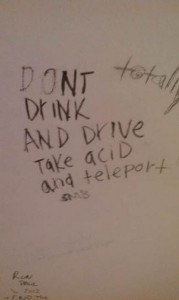 DONT
totally
DRINK
AND DRIVE
TAKE ACID
and teleport